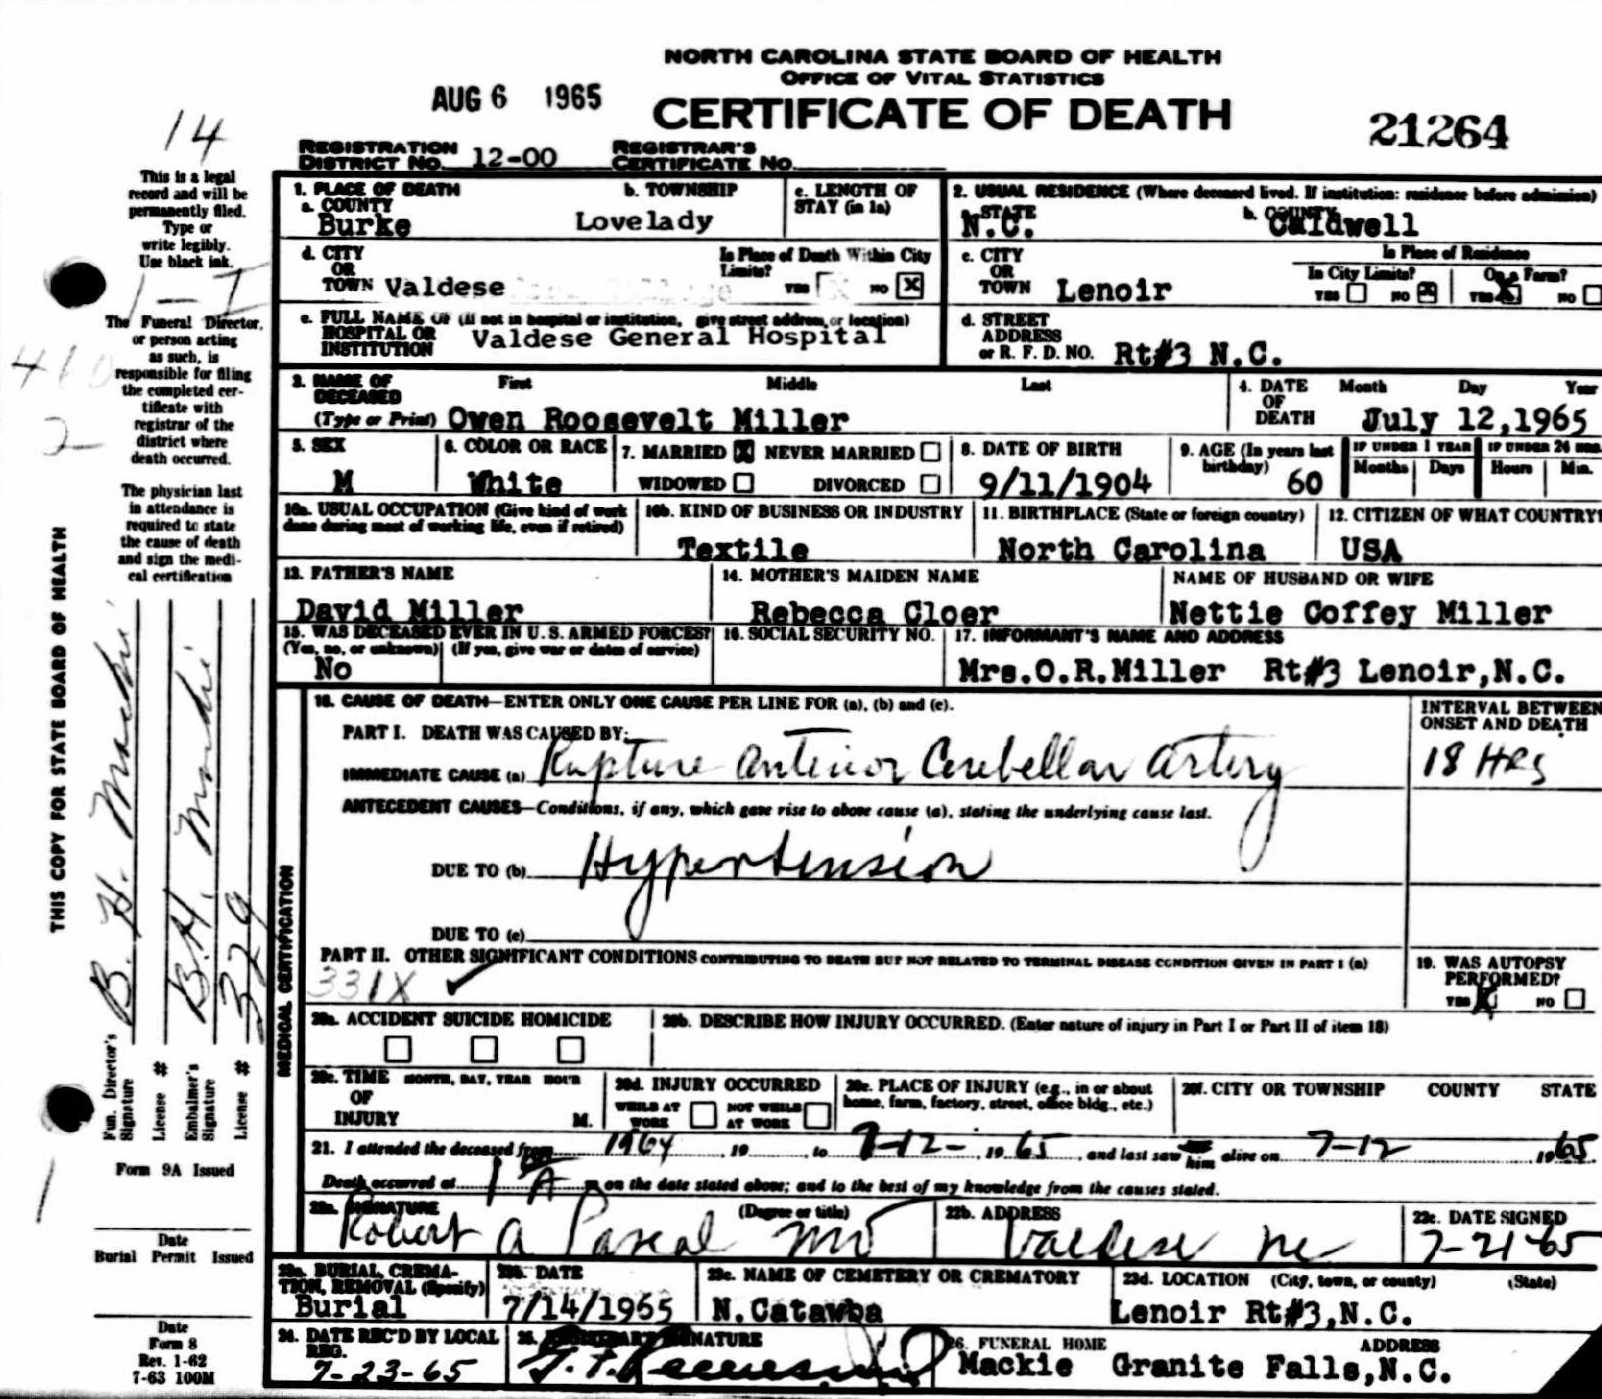 NORTH CAROLINA STATE BOARD OF HEALTH
OFFICE OF VITAL STATISTICS
AUG 6 1965
CERTIFICATE OF DEATH
21264
14
REGISTRATION DISTRICT NO. 12-00
REGISTRAR'S CERTIFICATE NO.
This is a legal
record and will be
permanently filed.
Type or
write legibly.
Use black ink.
The Funeral Director,
or person acting
as such, is
responsible for filing
the completed cer-
tificate with
registrar of the
district where
death occurred.
The physician last
in attendance is
required to state
the cause of death
and sign the medi-
cal certification
THIS COPY FOR STATE BOARD OF HEALTH
B. H. Mackie
B. H. Mackie
329
Fun. Director's Signature
License #
Embalmer's Signature
License #
Form 9A Issued
Date
Burial Permit Issued
Date
Form 8
Rev. 1-62
7-63 100M
1. PLACE OF DEATH
a. COUNTY
Burke
b. TOWNSHIP
Lovelady
c. LENGTH OF STAY (in 1a)
2. USUAL RESIDENCE (Where deceased lived. If institution: residence before admission)
a. STATE
N.C.
b. COUNTY
Caldwell
d. CITY OR TOWN Valdese
In Place of Death Within City Limits?
YES NO X
c. CITY OR TOWN Lenoir
In Place of Residence
In City Limits? On a Farm?
YES NO X YES X NO
e. FULL NAME OF (If not in hospital or institution, give street address, or location)
HOSPITAL OR INSTITUTION Valdese General Hospital
d. STREET ADDRESS or R. F. D. NO. Rt#3 N.C.
3. NAME OF DECEASED
(Type or Print)
First Middle Last
Owen Roosevelt Miller
4. DATE OF DEATH
Month Day Year
July 12,1965
5. SEX
M
6. COLOR OR RACE
White
7. MARRIED X NEVER MARRIED
WIDOWED DIVORCED
8. DATE OF BIRTH
9/11/1904
9. AGE (In years last birthday)
60
IF UNDER 1 YEAR
Months Days
IF UNDER 24 HRS.
Hours Min.
10a. USUAL OCCUPATION (Give kind of work done during most of working life, even if retired)
10b. KIND OF BUSINESS OR INDUSTRY
Textile
11. BIRTHPLACE (State or foreign country)
North Carolina
12. CITIZEN OF WHAT COUNTRY?
USA
13. FATHER'S NAME
David Miller
14. MOTHER'S MAIDEN NAME
Rebecca Cloer
NAME OF HUSBAND OR WIFE
Nettie Coffey Miller
15. WAS DECEASED EVER IN U. S. ARMED FORCES?
(Yes, no, or unknown) (If yes, give war or dates of service)
No
16. SOCIAL SECURITY NO.
17. INFORMANT'S NAME AND ADDRESS
Mrs.O.R.Miller Rt#3 Lenoir,N.C.
MEDICAL CERTIFICATION
18. CAUSE OF DEATH—ENTER ONLY ONE CAUSE PER LINE FOR (a), (b) and (c).
INTERVAL BETWEEN ONSET AND DEATH
PART I. DEATH WAS CAUSED BY:
IMMEDIATE CAUSE (a) Rupture Anterior Cerebellar Artery
18 HRS
ANTECEDENT CAUSES—Conditions, if any, which gave rise to above cause (a), stating the underlying cause last.
DUE TO (b) Hypertension
DUE TO (c)
PART II. OTHER SIGNIFICANT CONDITIONS CONTRIBUTING TO DEATH BUT NOT RELATED TO TERMINAL DISEASE CONDITION GIVEN IN PART I (a)
331X
19. WAS AUTOPSY PERFORMED?
YES X NO
20a. ACCIDENT SUICIDE HOMICIDE
20b. DESCRIBE HOW INJURY OCCURRED. (Enter nature of injury in Part I or Part II of item 18)
20c. TIME OF INJURY
MONTH, DAY, YEAR HOUR
M.
20d. INJURY OCCURRED
WHILE AT WORK NOT WHILE AT WORK
20e. PLACE OF INJURY (e.g., in or about home, farm, factory, street, office bldg., etc.)
20f. CITY OR TOWNSHIP COUNTY STATE
21. I attended the deceased from 1964, 19 to 7-12-, 19 65, and last saw him alive on 7-12 1965.
Death occurred at m on the date stated above; and to the best of my knowledge from the causes stated.
22a. SIGNATURE (Degree or title)
Robert A MD
22b. ADDRESS
Valdese NC
22c. DATE SIGNED
7-21-65
23a. BURIAL, CREMATION, REMOVAL (Specify)
Burial
23b. DATE
7/14/1965
23c. NAME OF CEMETERY OR CREMATORY
N.Catawba
23d. LOCATION (City, town, or county) (State)
Lenoir Rt#3,N.C.
24. DATE REC'D BY LOCAL REG.
7-23-65
25. REGISTRAR'S SIGNATURE
26. FUNERAL HOME ADDRESS
Mackie Granite Falls,N.C.